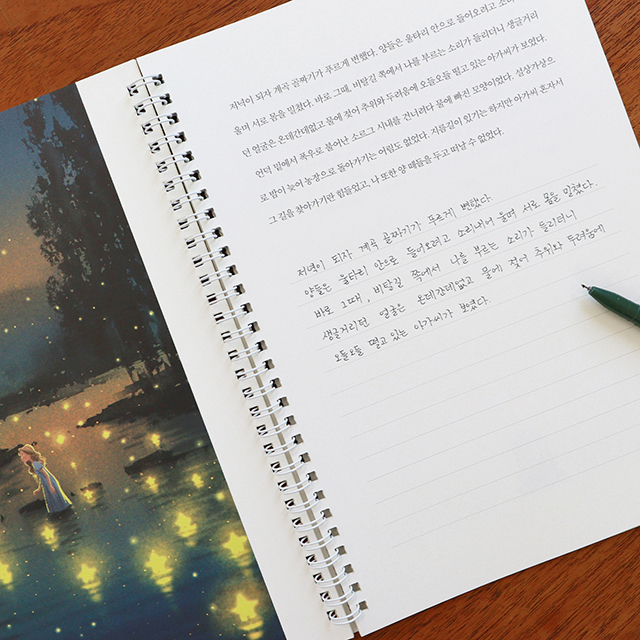 저녁이 되자 계곡 골짜기가 푸르게 변했다. 양들은 울타리 안으로 들어오려고 소리
울며 서로 몸을 밀쳤다. 바로 그때, 비탈길 쪽에서 나를 부르는 소리가 들리더니 생글거리
던 얼굴은 온데간데없고 몸에 젖어 추위와 두려움에 오들오들 떨고 있는 아가씨가 보였다.
언덕 밑에서 폭우로 불어난 소르그 시내를 건너려다 물에 빠진 모양이었다. 설상가상으
로 밤이 늦어 농장으로 돌아가기는 어림도 없었다. 지름길이 있기는 하지만 아가씨 혼자서
그 길을 찾아가기란 힘들었고, 나 또한 양 떼들을 두고 떠날 수 없었다.
저녁이 되자 계곡 골짜기가 푸르게 변했다.
양들은 울타리 안으로 들어오려고 소리내어 울며 서로 몸을 밀쳤다.
바로 그때, 비탈길 쪽에서 나를 부르는 소리가 들리더니
생글거리던 얼굴은 온데간데없고 물에 젖어 추위와 두려움에
오들오들 떨고 있는 아가씨가 보였다.